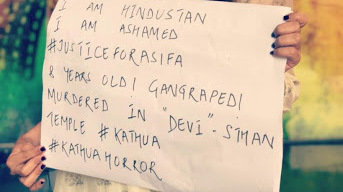 I AM HINDUSTAN
I AM ASHAMED
#JUSTIICEFORASIFA
8 YEARS OLD! GANGRAPED!
MURDERED IN "DEVI"-STHAN
TEMPLE #KATHUA
#KATHUAHORROR